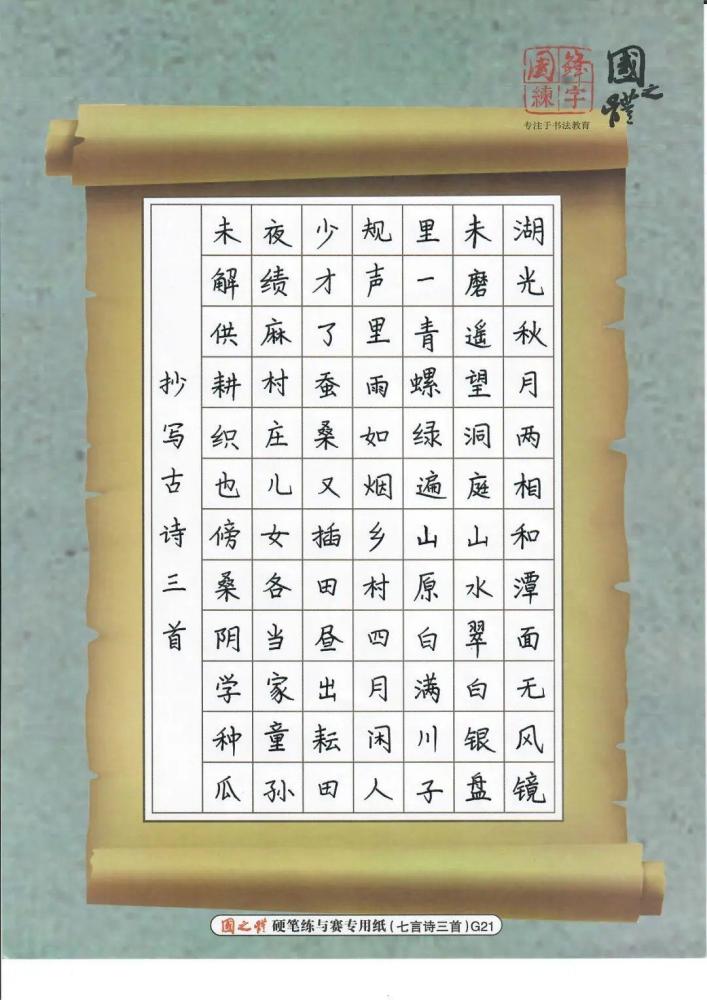 國之
國鋒
練字
专注于书法教育
湖光秋月两相和潭面无风镜
未磨遥望洞庭山水翠白银盘
里一青螺绿遍山原白满川子
规声里雨如烟乡村四月闲人
少才了蚕桑又插田昼出耘田
夜绩麻村庄儿女各当家童孙
未解供耕织也傍桑阴学种瓜
抄写古诗三首
國之 硬笔练与赛专用纸(七言诗三首)G21